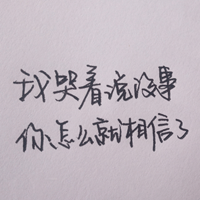 我哭着说没事
你怎么就相信了